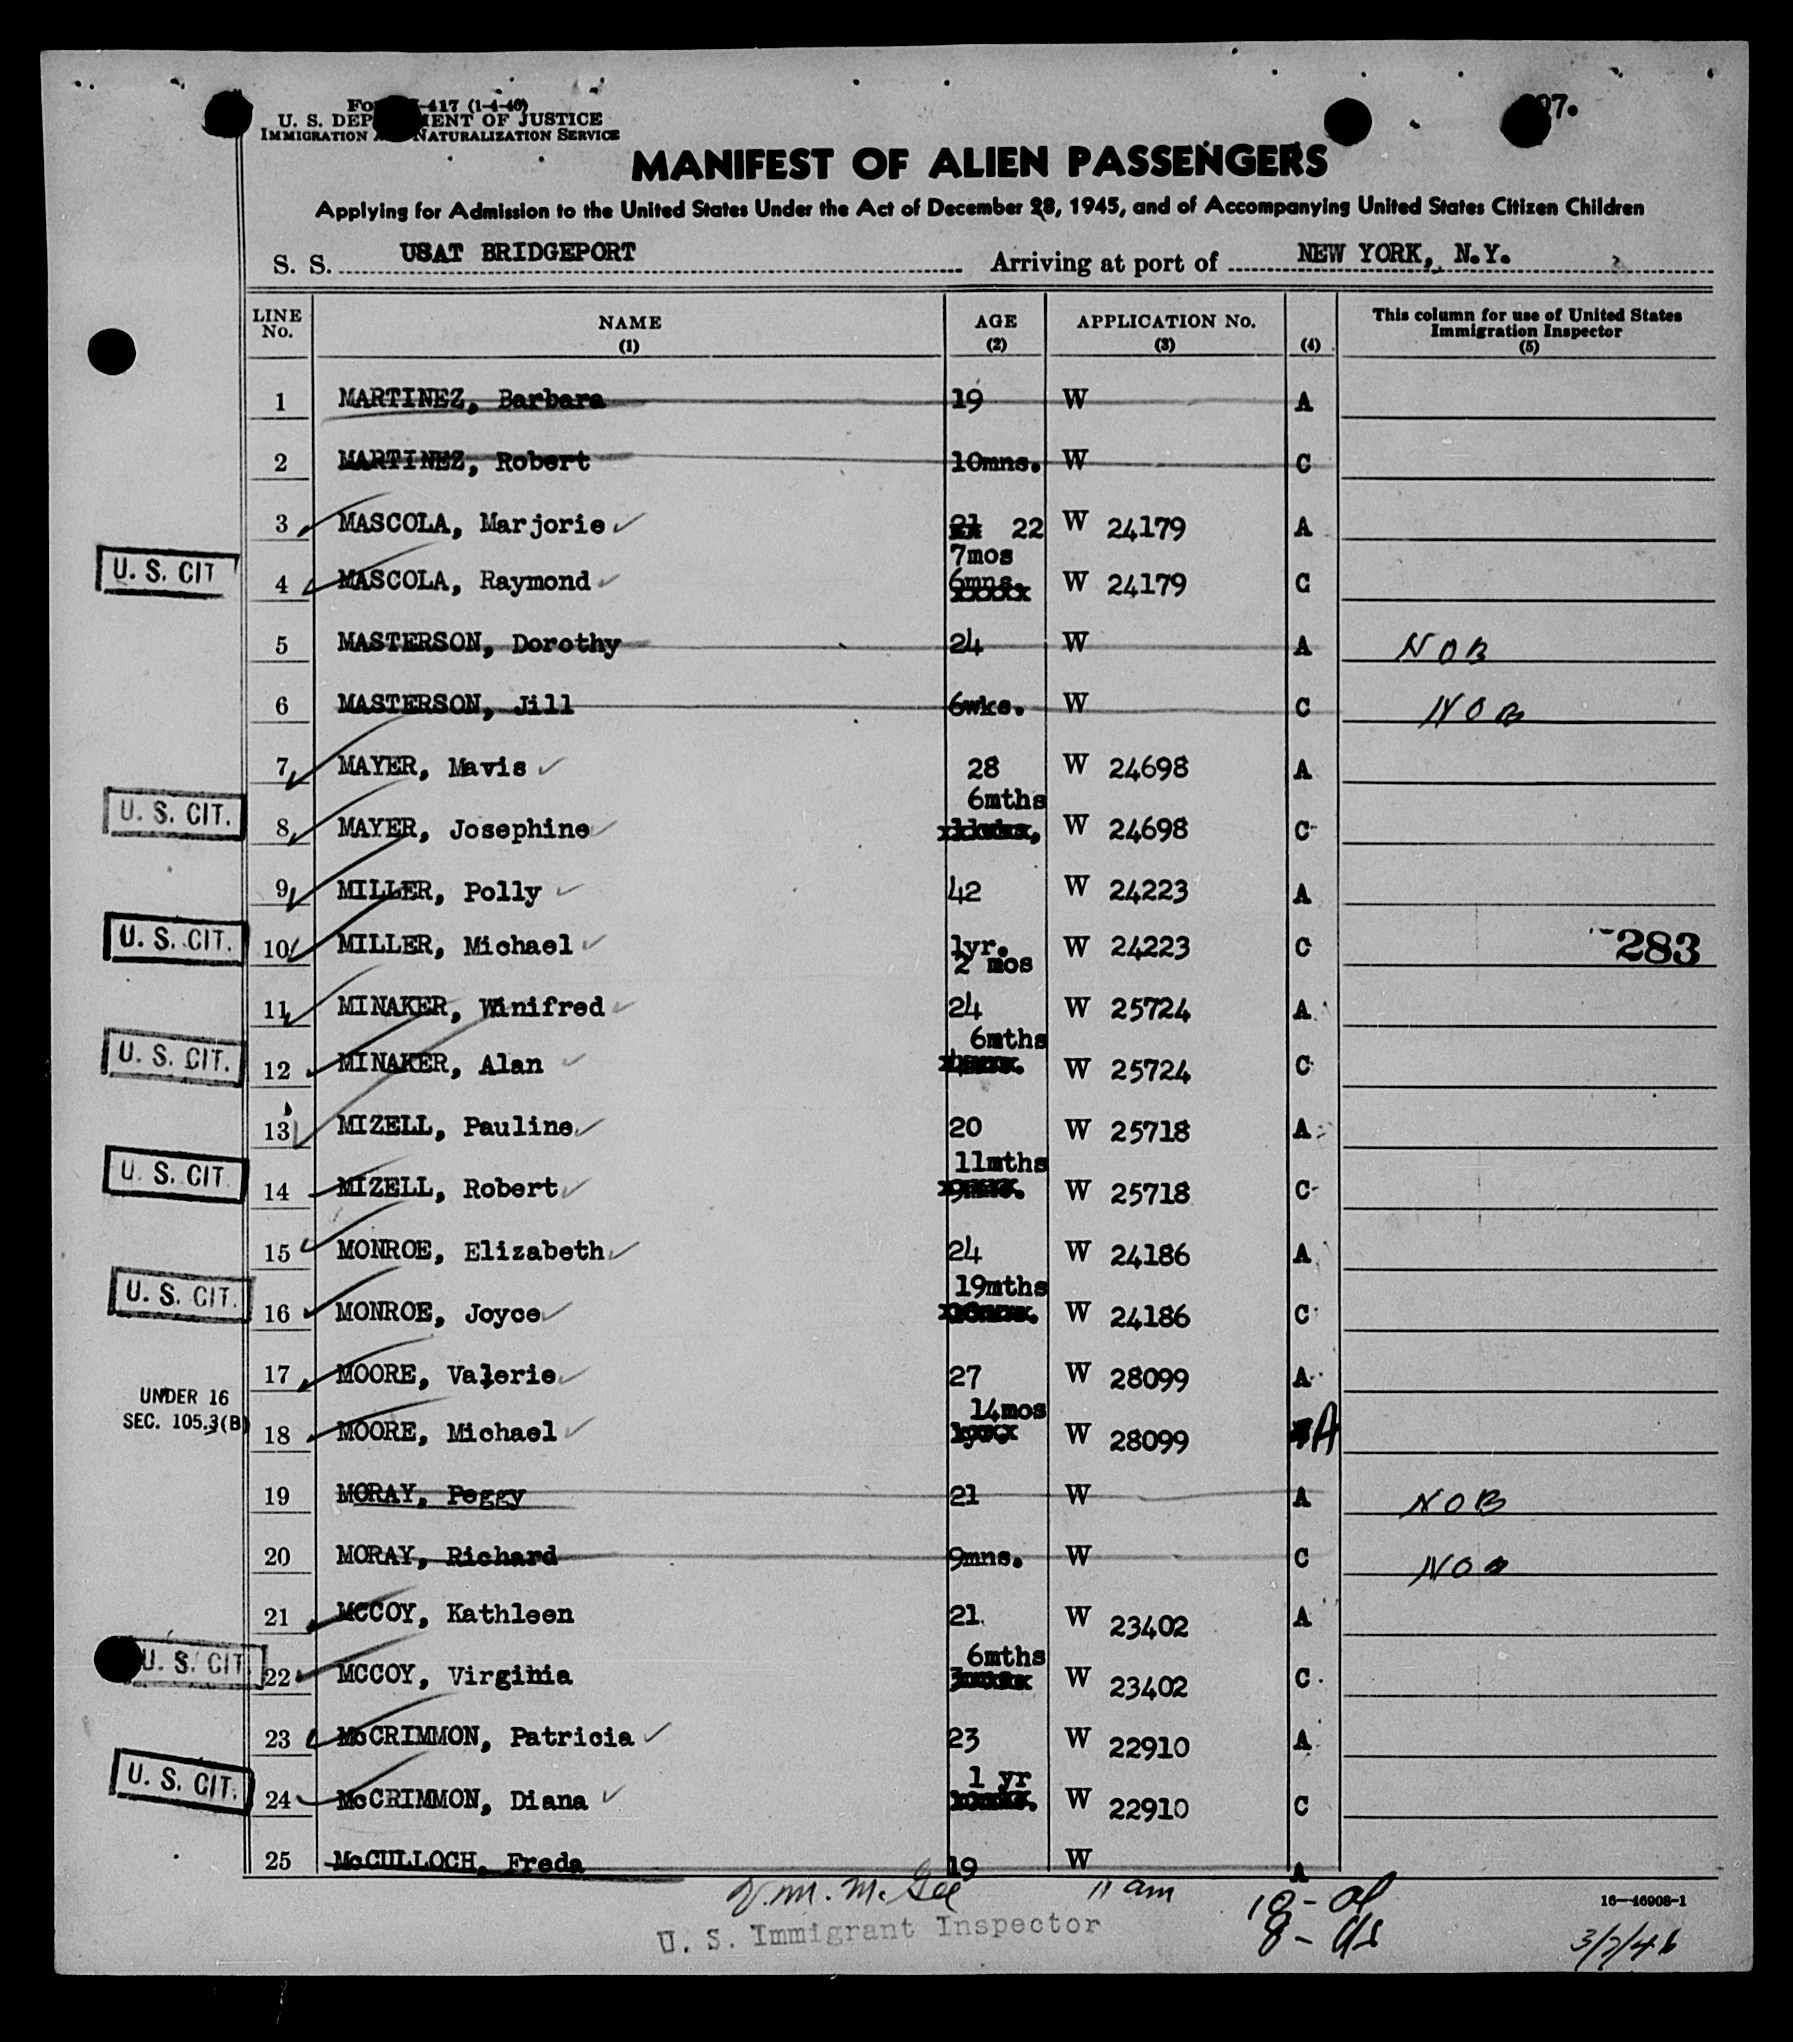 U. S. DEPARTMENT OF JUSTICE
IMMIGRATION NATURALIZATION SERVICE
MANIFEST OF ALIEN PASSENGERS
Applying for Admission to the United States Under the Act of December 28, 1945, and of Accompanying United States Citizen Children
S. S. USAT BRIDGEPORT Arriving at port of NEW YORK, N.Y.
LINE No. NAME (1) AGE (2) APPLICATION No. (3) (4) This column for use of United States Immigration Inspector (5)
1 MARTINEZ, Barbara 19 W A
2 MARTINEZ, Robert 10mns. W C
3 MASCOLA, Marjorie 21 22 W 24179 A
7mos
U. S. CIT 4 MASCOLA, Raymond 6mns. W 24179 C
5 MASTERSON, Dorothy 24 W A NOB
6 MASTERSON, Jill 6wks. W C NOB
7 MAYER, Mavis 28 W 24698 A
6mths
U. S. CIT. 8 MAYER, Josephine W 24698 C
9 MILLER, Polly 42 W 24223 A
U. S. CIT. 10 MILLER, Michael 1yr. W 24223 C 283
2 mos
11 MINAKER, Winifred 24 W 25724 A
6mths
U. S. CIT. 12 MINAKER, Alan W 25724 C
13 MIZELL, Pauline 20 W 25718 A
11mths
U. S. CIT. 14 MIZELL, Robert W 25718 C
15 MONROE, Elizabeth 24 W 24186 A
19mths
U. S. CIT. 16 MONROE, Joyce W 24186 C
17 MOORE, Valerie 27 W 28099 A
UNDER 16
SEC. 105.3(B)
14mos
18 MOORE, Michael W 28099 A
19 MORAY, Peggy 21 W A NOB
20 MORAY, Richard 9mns. W C NOB
21 MCCOY, Kathleen 21 W 23402 A
6mths
U. S. CIT 22 MCCOY, Virginia W 23402 C
23 McCRIMMON, Patricia 23 W 22910 A
1 yr
U. S. CIT. 24 McCRIMMON, Diana W 22910 C
25 McCULLOCH, Freda 19 W A
11 am
U. S. Immigrant Inspector
16—46908-1